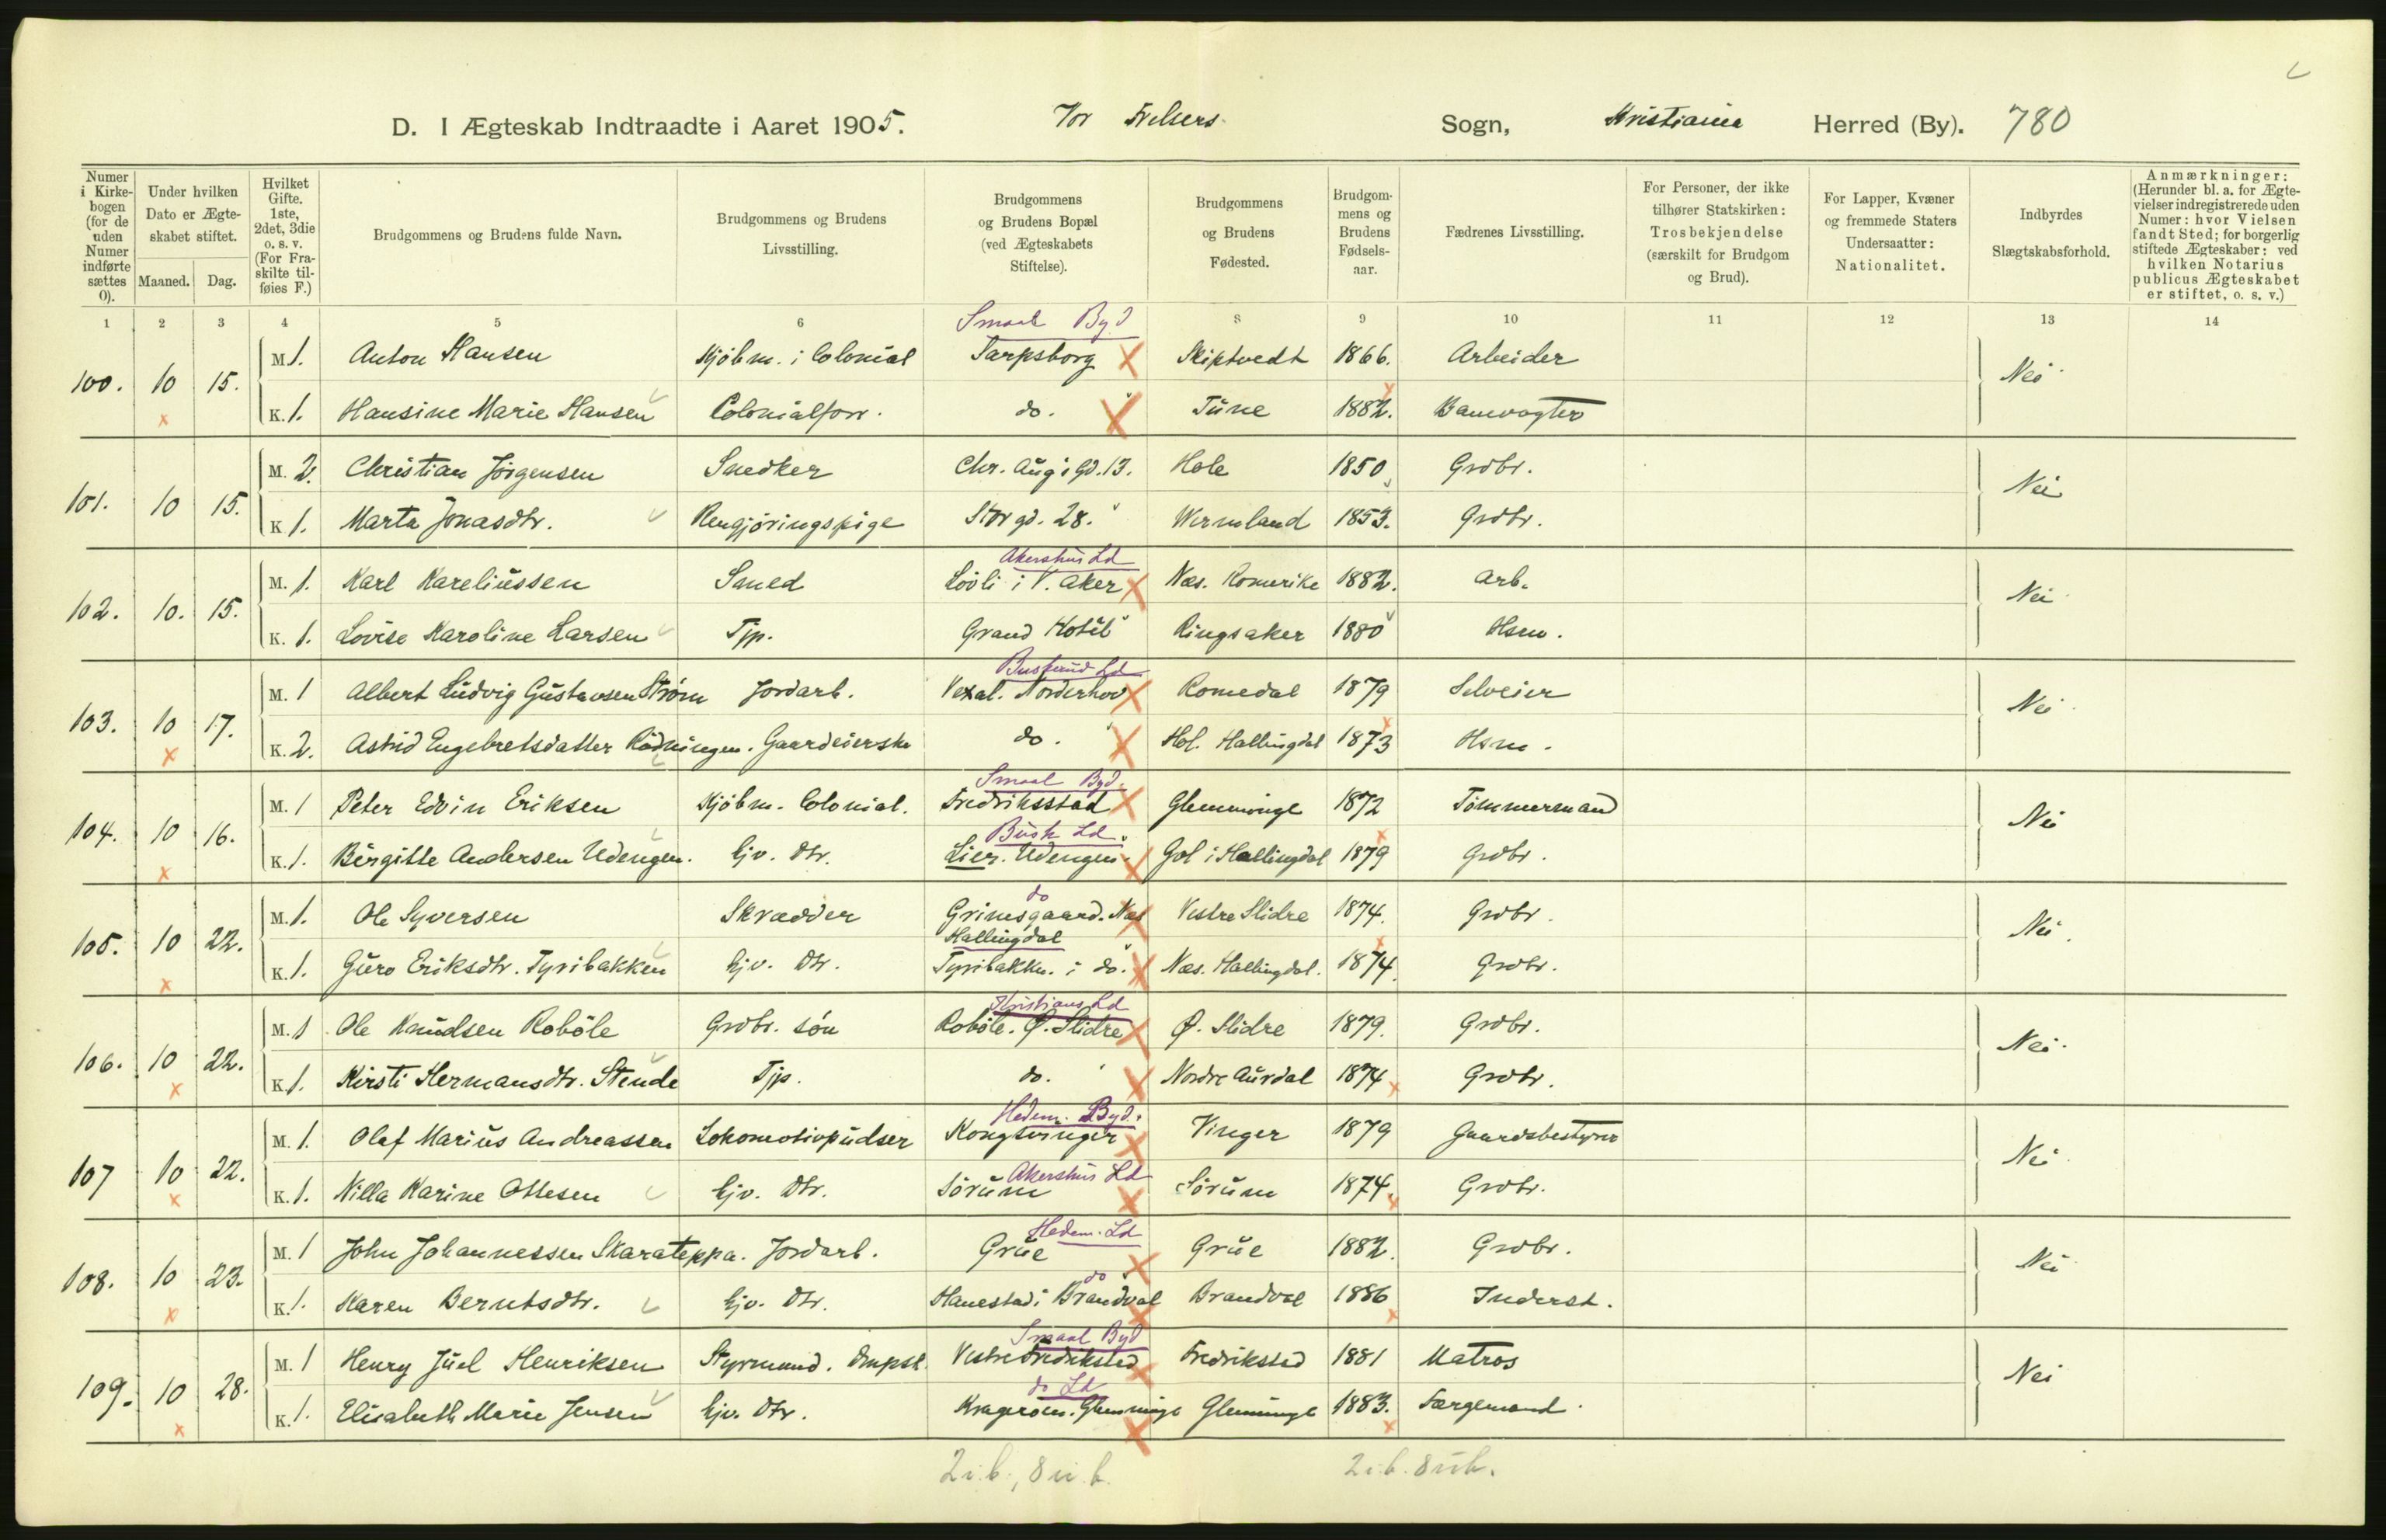 D. I Ægteskab Indtraadte i Aaret 1905. Vor Frelsers Sogn, Kristiania Herred (By). 780
Numer i Kirkebogen (for de uden Numer indførte sættes 0). Under hvilken Dato er Ægteskabet stiftet. Maaned. Dag. Hvilket Gifte. 1ste, 2det, 3die o. s. v. (For Fraskilte tilføies F.) Brudgommens og Brudens fulde Navn. Brudgommens og Brudens Livsstilling. Brudgommens og Brudens Bopæl (ved Ægteskabets Stiftelse). Brudgommens og Brudens Fødested. Brudgommens og Brudens Fødselsaar. Fædrenes Livsstilling. For Personer, der ikke tilhører Statskirken: Trosbekjendelse (særskilt for Brudgom og Brud). For Lapper, Kvæner og fremmede Staters Undersaatter: Nationalitet. Indbyrdes Slægtskabsforhold. Anmærkninger: (Herunder bl. a. for Ægtevielser indregistrerede uden Numer: hvor Vielsen fandt Sted; for borgerlig stiftede Ægteskaber: ved hvilken Notarius publicus Ægteskabet er stiftet, o. s. v.)
1 2 3 4 5 6 8 9 10 11 12 13 14
Smaal Byd
100. 10 15. M. 1. Anton Hansen Kjöbm. i Colonial Sarpsborg Skiptvedt 1866. Arbeider Nei
K. 1. Hansine Marie Hansen Colonialforr. do. Tune 1882. Banevogter
101. 10 15. M. 2. Christian Jörgensen Snedker Chr. Aug's Gd. 13. Hole 1850 Grdbr. Nei
K. 1. Marta Jonasdtr. Rengjöringspige Storgd. 28. Wermland 1853. Grdbr.
Akershus Ld
102. 10. 15. M. 1. Karl Kareliussen Smed Lövli i V. Aker Næs. Romerike 1882. Arb. Nei
K. 1. Lovise Karoline Larsen Tjp. Grand Hotel Ringsaker 1880 Hsm.
Buskerud Ld
103. 10 17. M. 1 Albert Ludvig Gustavsen Ström Jordarb. Vexal. Norderhov Romedal 1879 Selveier Nei
K. 2. Astrid Engebretsdatter Rödningen. Gaardeierske do. Hol. Hallingdal 1873 Hsm.
Smaal Byd.
104. 10 16. M. 1 Peter Edvin Eriksen Kjöbm. Colonial. Fredriksstad Glemminge 1872 Tömmermand Nei
Busk Ld.
K. 1. Birgitte Andersen Udengen. hjv. Dtr. Lier. Udengen. Gol i Hallingdal 1879 Grdbr.
do
105. 10 22. M. 1. Ole Syversen Skrædder Grimsgaard. Næs Vestre Slidre 1874. Grdbr. Nei.
Hallingdal
K. 1. Guro Eriksdtr. Tyribakken hjv. Dtr. Tyribakken. i do. Næs. Hallingdal. 1874. Grdbr.
Kristians Ld
106. 10 22. M. 1 Ole Knudsen Roböle Grdbr. sön Roböle. Ø. Slidre Ø. Slidre 1879. Grdbr. Nei
K. 1. Kirsti Hermansdtr. Stende Tjp. do. Nordre Aurdal 1874 Grdbr.
Hedem. Byd.
107 10 22. M. 1. Olaf Marius Andreassen Lokomotivpudser Kongsvinger Vinger 1879 Gaardsbestyrer Nei
Akershus Ld
K. 1. Nilla Karine Ottesen hjv. Dtr. Sörum Sörum 1874. Grdbr.
Hedem. Ld
108. 10 23. M. 1 John Johannessen Skarateppa. Jordarb. Grue Grue 1882. Grdbr. Nei
do
K. 1. Karen Berntsdtr. hjv. Dtr. Hanestad i Brandval Brandval 1886 Inderst.
Smaal Byd
109. 10 28. M. 1 Henry Juel Henriksen Styrmand. Dmpsk. Vestre Fredriksted Fredriksted 1881 Matros Nei
do Ld
K. 1. Elisabeth Marie Jensen hjv. Dtr. Krageröen. Glemminge Glemminge 1883. Færgemand
2 i.b., 8 u.b. 2 i.b. 8 u.b.